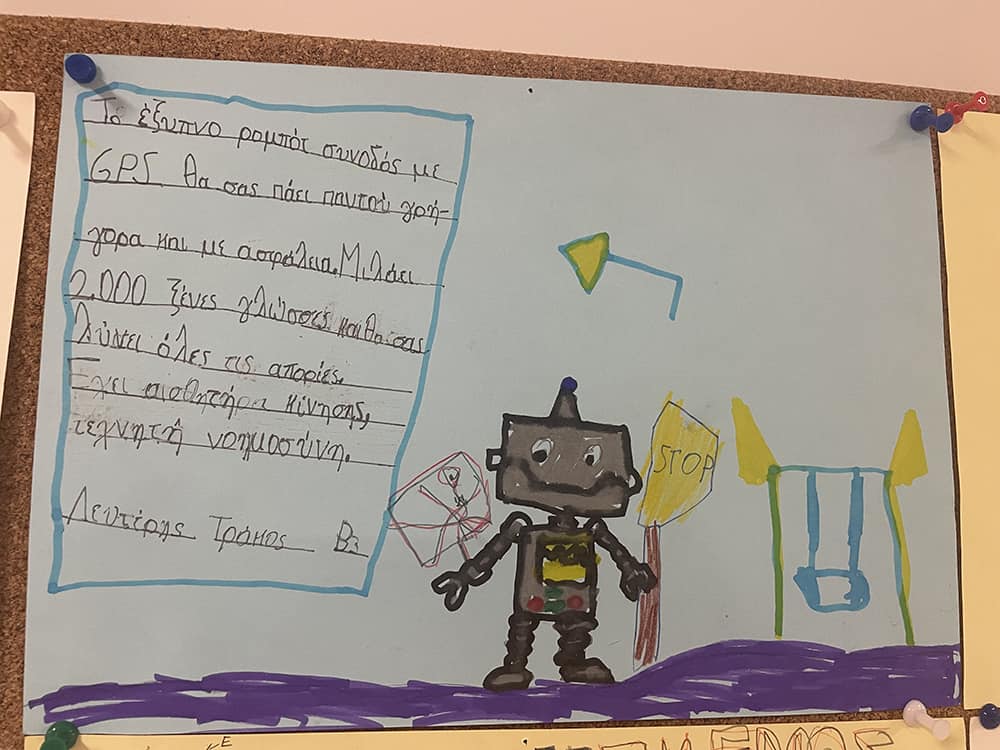 Το έξυπνο ρομπότ συνοδός με
GPS θα σας πάει παντού γρή-
γορα και με ασφάλεια. Μιλάει
2.000 ξένες γλώσσες και θα σας
λύνει όλες τις απορίες.
Έχει αισθητήρα κίνησης,
τεχνητή νοημοσύνη.
Λευτέρης Τράκος Β3
STOP